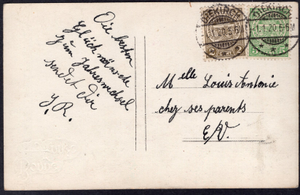 Die besten
Glückwünsche
zum Jahreswechsel
sendet dir
J.R.
DIEKIRCH
DIEKIRCH
1.1.20.5-6
Melle Louis Antonie
chez ses parents
E/V.